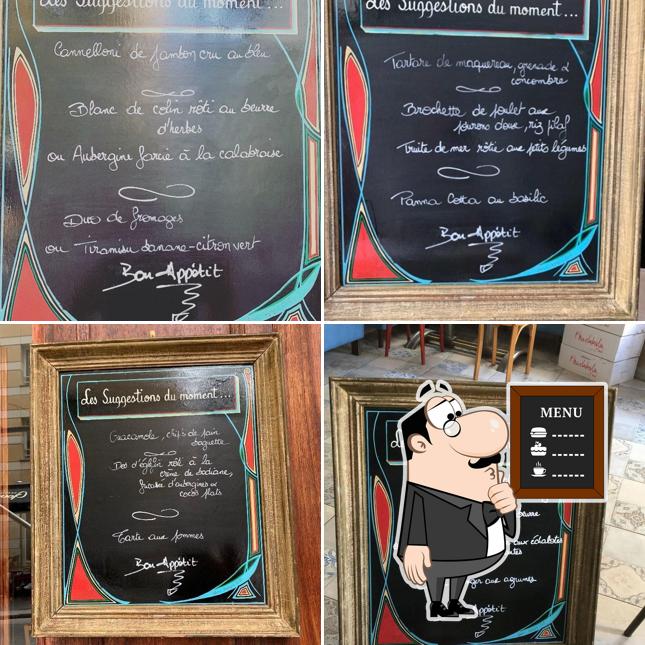 Les Suggestions du moment...
Cannelloni de jambon cru au bleu
Blanc de colin rôti au beurre
d'herbes
ou Aubergine farcie à la calabraise
Duo de fromages
ou Tiramisu banane-citron vert
Bon Appétit
Les Suggestions du moment...
Tartare de maquereau, grenade &
concombre
Brochette de poulet aux
poivrons doux, riz pilaf
Truite de mer rôtie aux petits légumes
Panna Cotta au basilic
Bon Appétit
Les Suggestions du moment...
Guacamole, chips de pain
baguette
Dos d'églefin rôti à la
crème de badiane,
fricassé d'aubergines &
cocos plats
Tarte aux pommes
Bon Appétit
MENU
beurre
aux échalotes
aux agrumes
ppétit